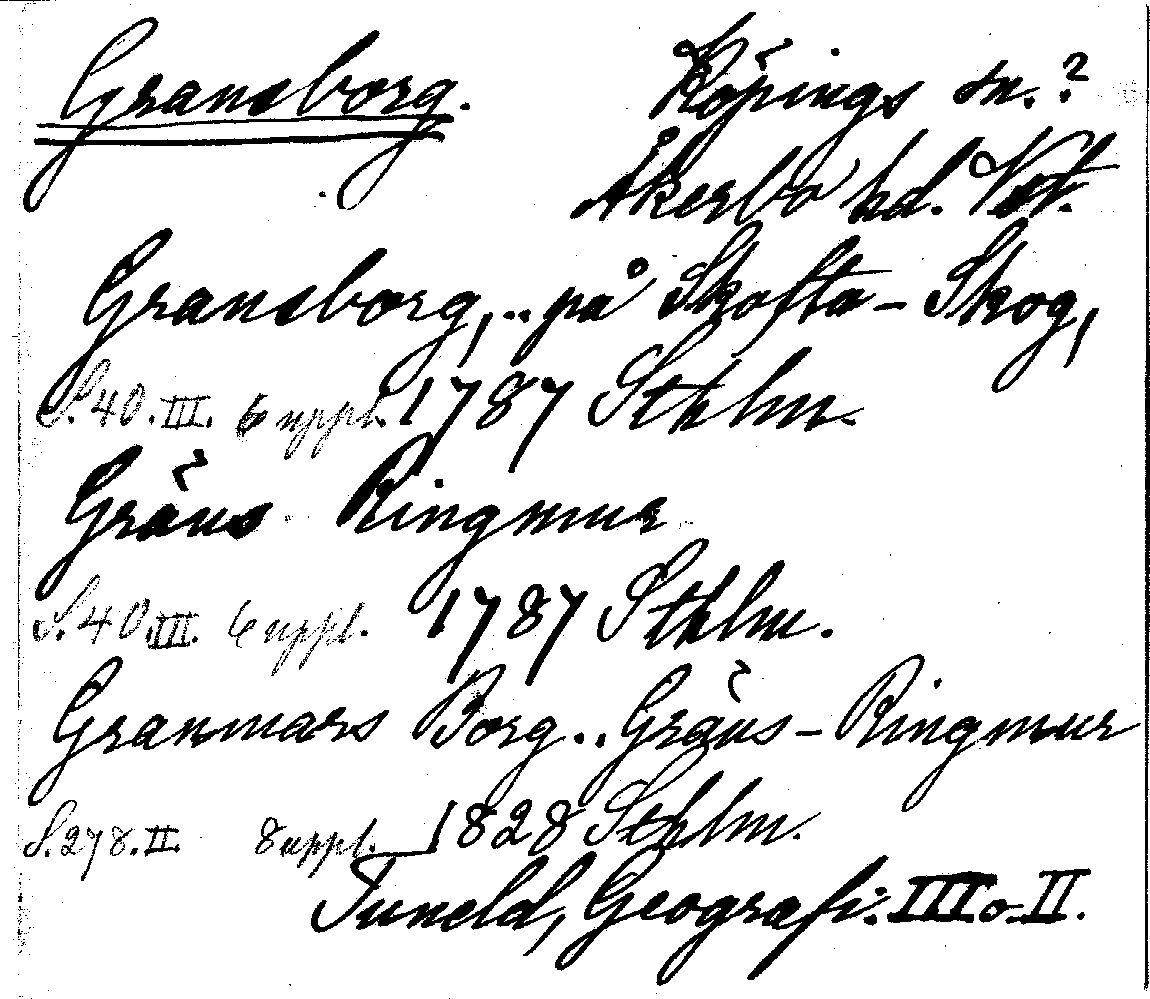 Gransborg. Köpings sn.?
Åkerbo hd. Vstm.
Gransborg,.. på Skofta-Skog,
S. 40. III. 6 uppl. 1787 Sthlm.
Gräns Ringmur
S. 40. III. 6 uppl. 1787 Sthlm.
Granmars Borg.. Gräns-Ringmur
S. 278. II. 8 uppl. 1828 Sthlm.
Tuneld, Geografi: III o. II.